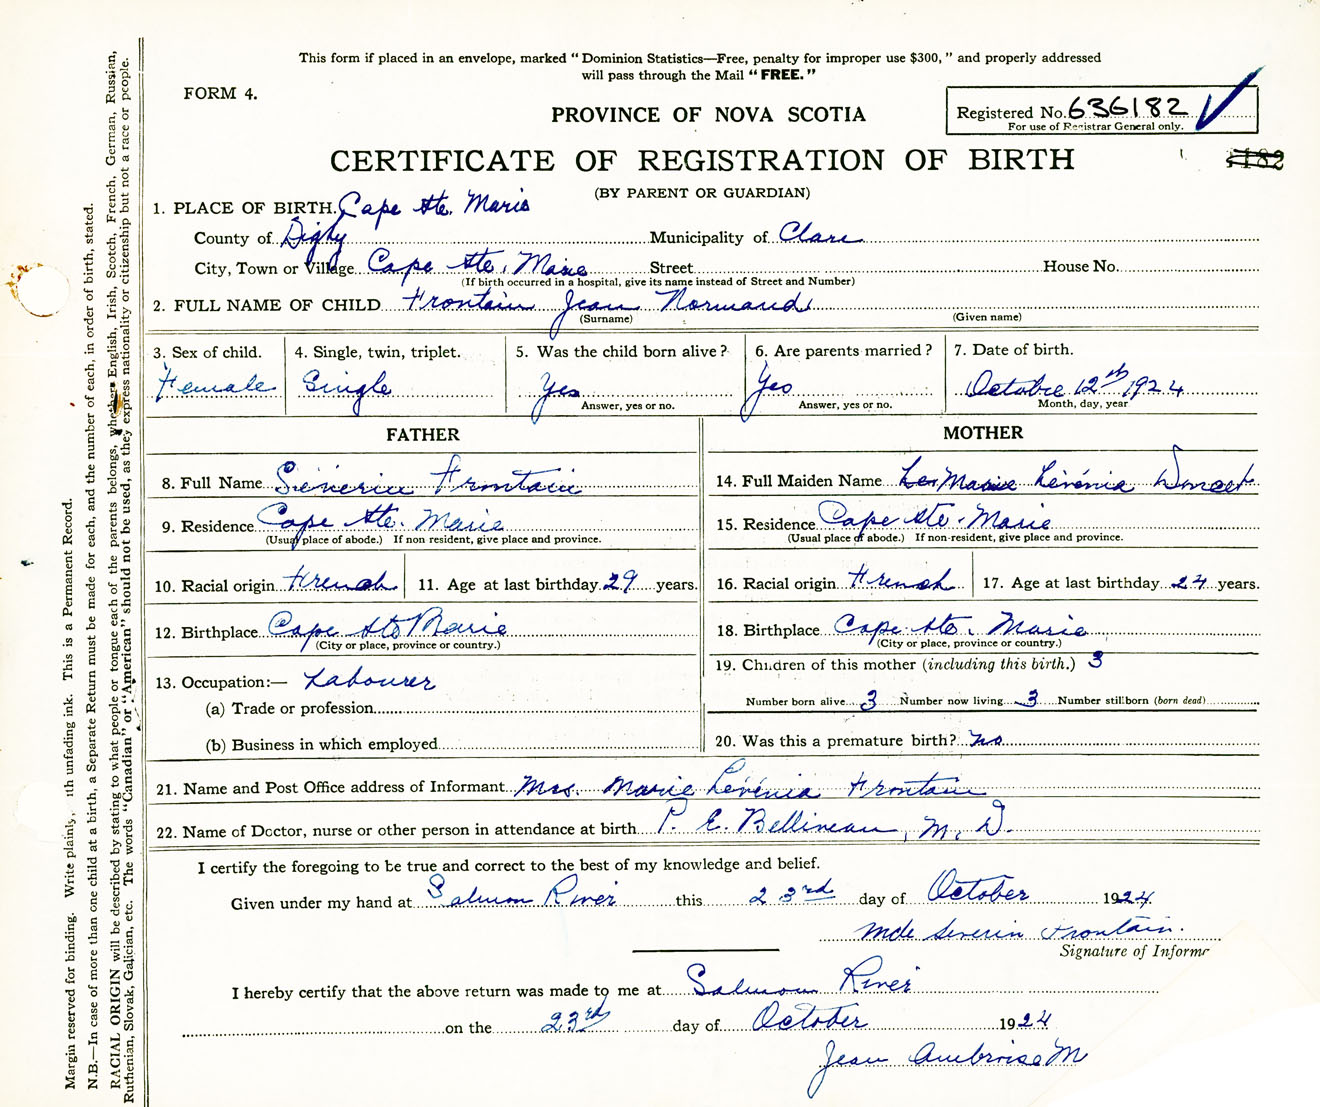 This form if placed in an envelope, marked "Dominion Statistics—Free, penalty for improper use $300," and properly addressed
will pass through the Mail "FREE."
FORM 4.
PROVINCE OF NOVA SCOTIA
Registered No. 636182
For use of Registrar General only.
CERTIFICATE OF REGISTRATION OF BIRTH
(BY PARENT OR GUARDIAN)
1. PLACE OF BIRTH. Cape Ste. Marie
County of Digby Municipality of Clare
City, Town or Village Cape Ste. Marie Street House No.
(If birth occurred in a hospital, give its name instead of Street and Number)
2. FULL NAME OF CHILD Frontain Jean Normand
(Surname) (Given name)
3. Sex of child. 4. Single, twin, triplet. 5. Was the child born alive? 6. Are parents married? 7. Date of birth.
Female Single Yes Yes Octobre 12th 1924
Answer, yes or no. Answer, yes or no. Month, day, year
FATHER MOTHER
8. Full Name Séverin Frontain 14. Full Maiden Name Marie Lévénia Doucet
9. Residence Cape Ste. Marie 15. Residence Cape Ste. Marie
(Usual place of abode.) If non resident, give place and province. (Usual place of abode.) If non-resident, give place and province.
10. Racial origin French 11. Age at last birthday 29 years. 16. Racial origin French 17. Age at last birthday 24 years.
12. Birthplace Cape Ste Marie 18. Birthplace Cape Ste. Marie
(City or place, province or country.) (City or place, province or country.)
13. Occupation:— Labourer 19. Children of this mother (including this birth.) 3
(a) Trade or profession Number born alive 3 Number now living 3 Number stillborn (born dead)
(b) Business in which employed 20. Was this a premature birth? no
21. Name and Post Office address of Informant Mrs. Marie Lévénia Frontain
22. Name of Doctor, nurse or other person in attendance at birth P. E. Bellineau, M. D.
I certify the foregoing to be true and correct to the best of my knowledge and belief.
Given under my hand at Salmon River this 23rd day of October 1924.
Mde Severin Frontain.
Signature of Informa
I hereby certify that the above return was made to me at Salmon River
on the 23rd day of October 1924
Jean Ambroise M
Margin reserved for binding. Write plainly, ith unfading ink. This is a Permanent Record.
N.B.—In case of more than one child at a birth, a Separate Return must be made for each, and the number of each, in order of birth, stated.
RACIAL ORIGIN will be described by stating to what people or tongue each of the parents belongs, whether English, Irish, Scotch, French, German, Russian,
Ruthenian, Slovak, Galician, etc. The words "Canadian" or "American" should not be used, as they express nationality or citizenship but not a race or people.